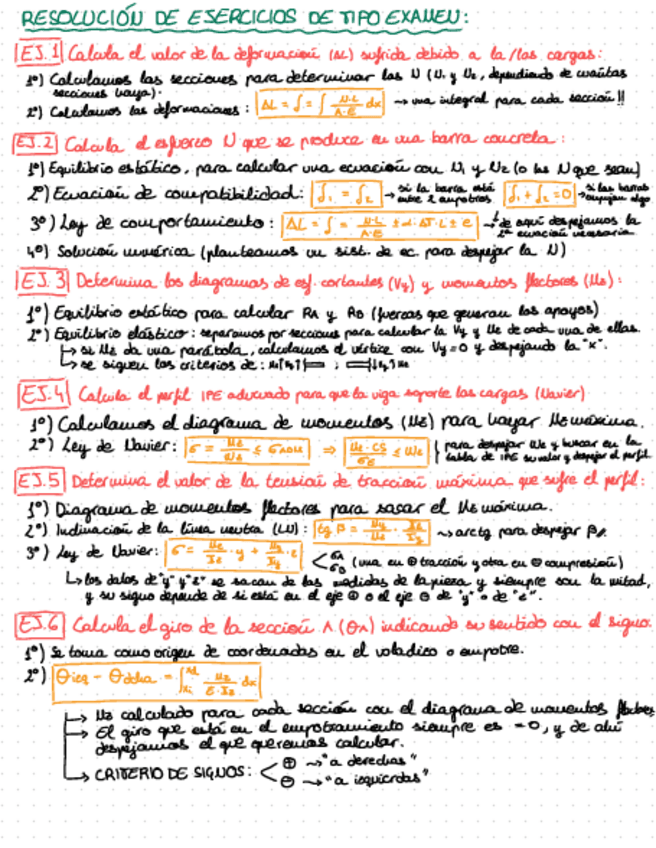 RESOLUCIÓN DE EJERCICIOS DE TIPO EXAMEN:
EJ.1 Calcula el valor de la deformación (ΔL) sufrida debido a la/las cargas:
1º) Calculamos las secciones para determinar las N (N₁ y N₂, dependiendo de cuántas
secciones haya).
2º) Calculamos las deformaciones: ΔL = ∫ = ∫ N·L/A·E dx → una integral para cada sección!!
EJ.2 Calcula el esfuerzo N que se produce en una barra concreta:
1º) Equilibrio estático, para calcular una ecuación con N₁ y N₂ (o las N que sean)
2º) Ecuación de compatibilidad: δ₁ = δ₂ → si la barra está entre 2 empotros δ₁ + δ₂ = 0 → si las barras empujan algo
3º) Ley de comportamiento: ΔL = δ = N·L/A·E ± α·ΔT·L ± e → de aquí despejamos la 2ª ecuación necesaria
4º) Solución numérica (planteamos un sist. de ec. para despejar la N)
EJ.3 Determina los diagramas de esf. cortantes (Vy) y momentos flectores (Mz):
1º) Equilibrio estático para calcular RA y RB (fuerzas que generan los apoyos)
2º) Equilibrio elástico: separamos por secciones para calcular la Vy y Mz de cada una de ellas.
↳ si Mz da una parábola, calculamos el vértice con Vy=0 y despejando la "x".
↳ se siguen los criterios de:
EJ.4 Calcula el perfil IPE adecuado para que la viga soporte las cargas (Navier)
1º) Calculamos el diagrama de momentos (Mz) para hayar Mz máxima.
2º) Ley de Navier: σ = Mz/Wz ≤ σADM ⇒ Mz·CS/σE ≤ Wz para despejar Wz y buscar en la
tabla de IPE su valor y despejar el perfil
EJ.5 Determina el valor de la tensión de tracción máxima que sufre el perfil:
1º) Diagrama de momentos flectores para sacar el Mz máxima.
2º) Inclinación de la línea neutra (LN): tg β = My/Mz · Iz/Iy → arctg para despejar β.
3º) Ley de Navier: σ = Mz/Iz · y + My/Iy · z < σA σB (una en ⊕ tracción y otra en ⊖ compresión)
↳ los datos de "y" y "z" se sacan de las medidas de la pieza y siempre son la mitad,
y su signo depende de si está en el eje ⊕ o el eje ⊖ de "y" o de "z".
EJ.6 Calcula el giro de la sección A (θA) indicando su sentido con el signo.
1º) Se toma como origen de coordenadas en el voladizo o empotre.
2º) θizq - θdcha = ∫ Mz/E·Iz dx
→ Mz calculado para cada sección con el diagrama de momentos flectores
→ El giro que está en el empotramiento siempre es =0, y de ahí
despejamos el que queremos calcular.
→ CRITERIO DE SIGNOS: < ⊕ → "a derechas"
⊖ → "a izquierdas"